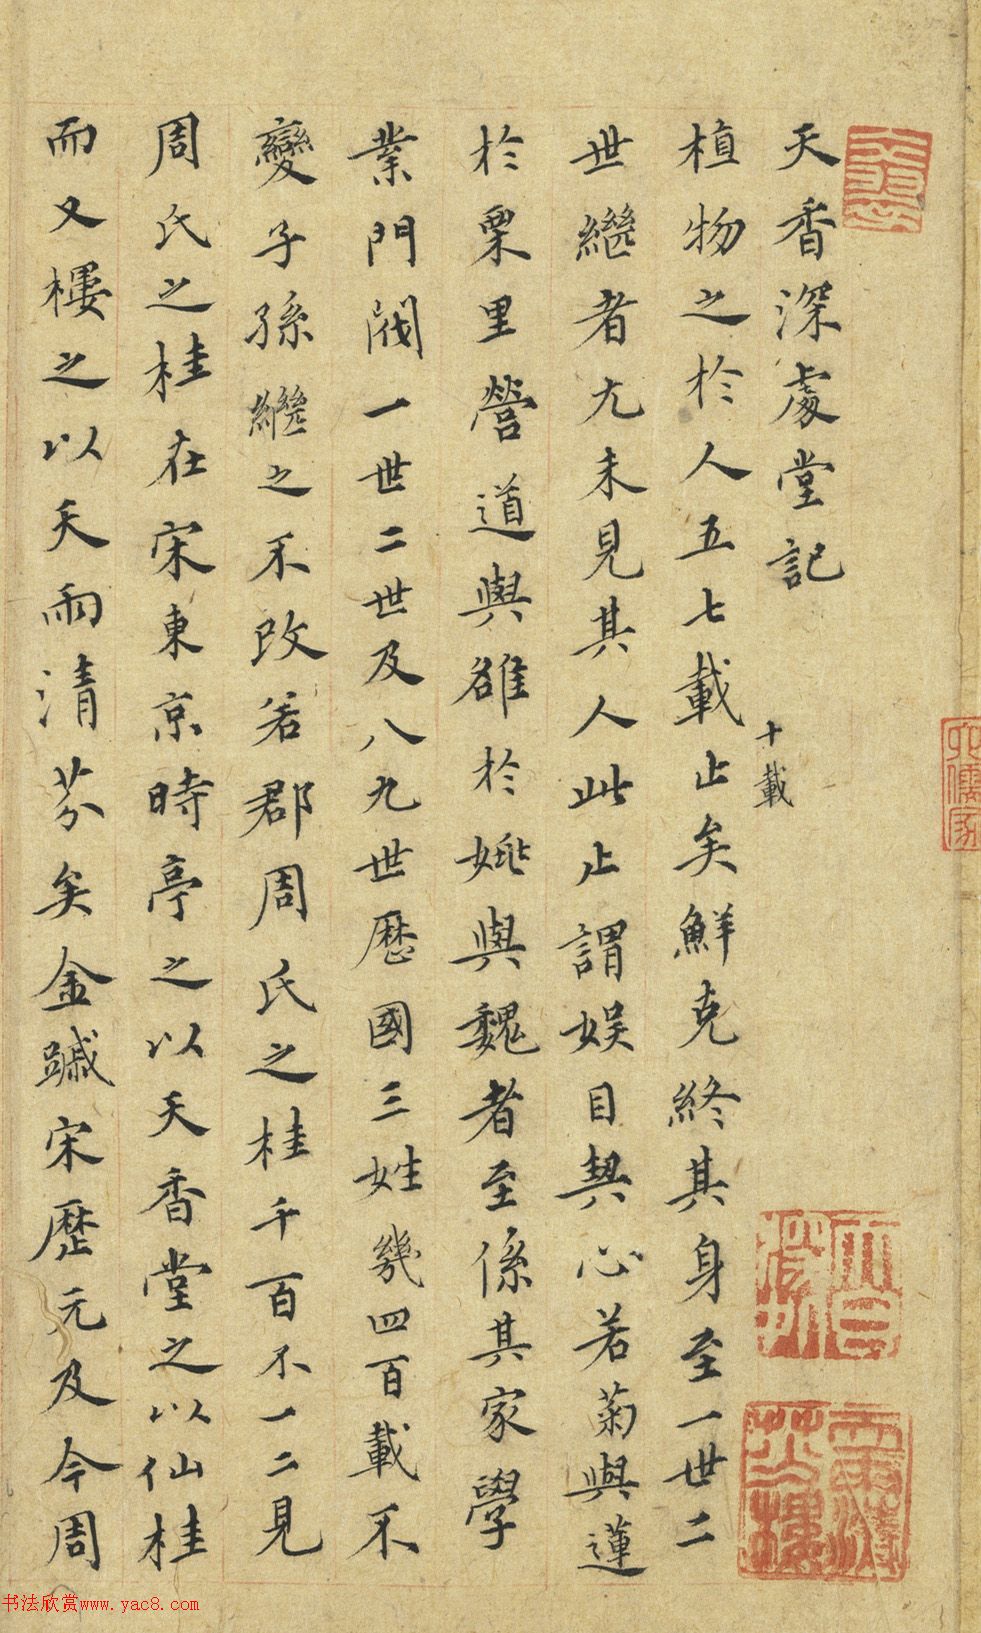 天香深處堂記
十載
植物之於人五七載止矣鮮克終其身至一世二
世繼者尤未見其人此止謂娛目契心若菊與蓮
於栗里營道與雒於姚與魏者至係其家學
業門閥一世二世及八九世歷國三姓幾四百載不
變子孫繼之不改若郡周氏之桂千百不一二見
周氏之桂在宋東京時亭之以天香堂之以仙桂
而又樓之以天雨清芬矣金踰宋歷元及今周
天雨清芬樓
六儒家
书法欣赏www.yac8.com